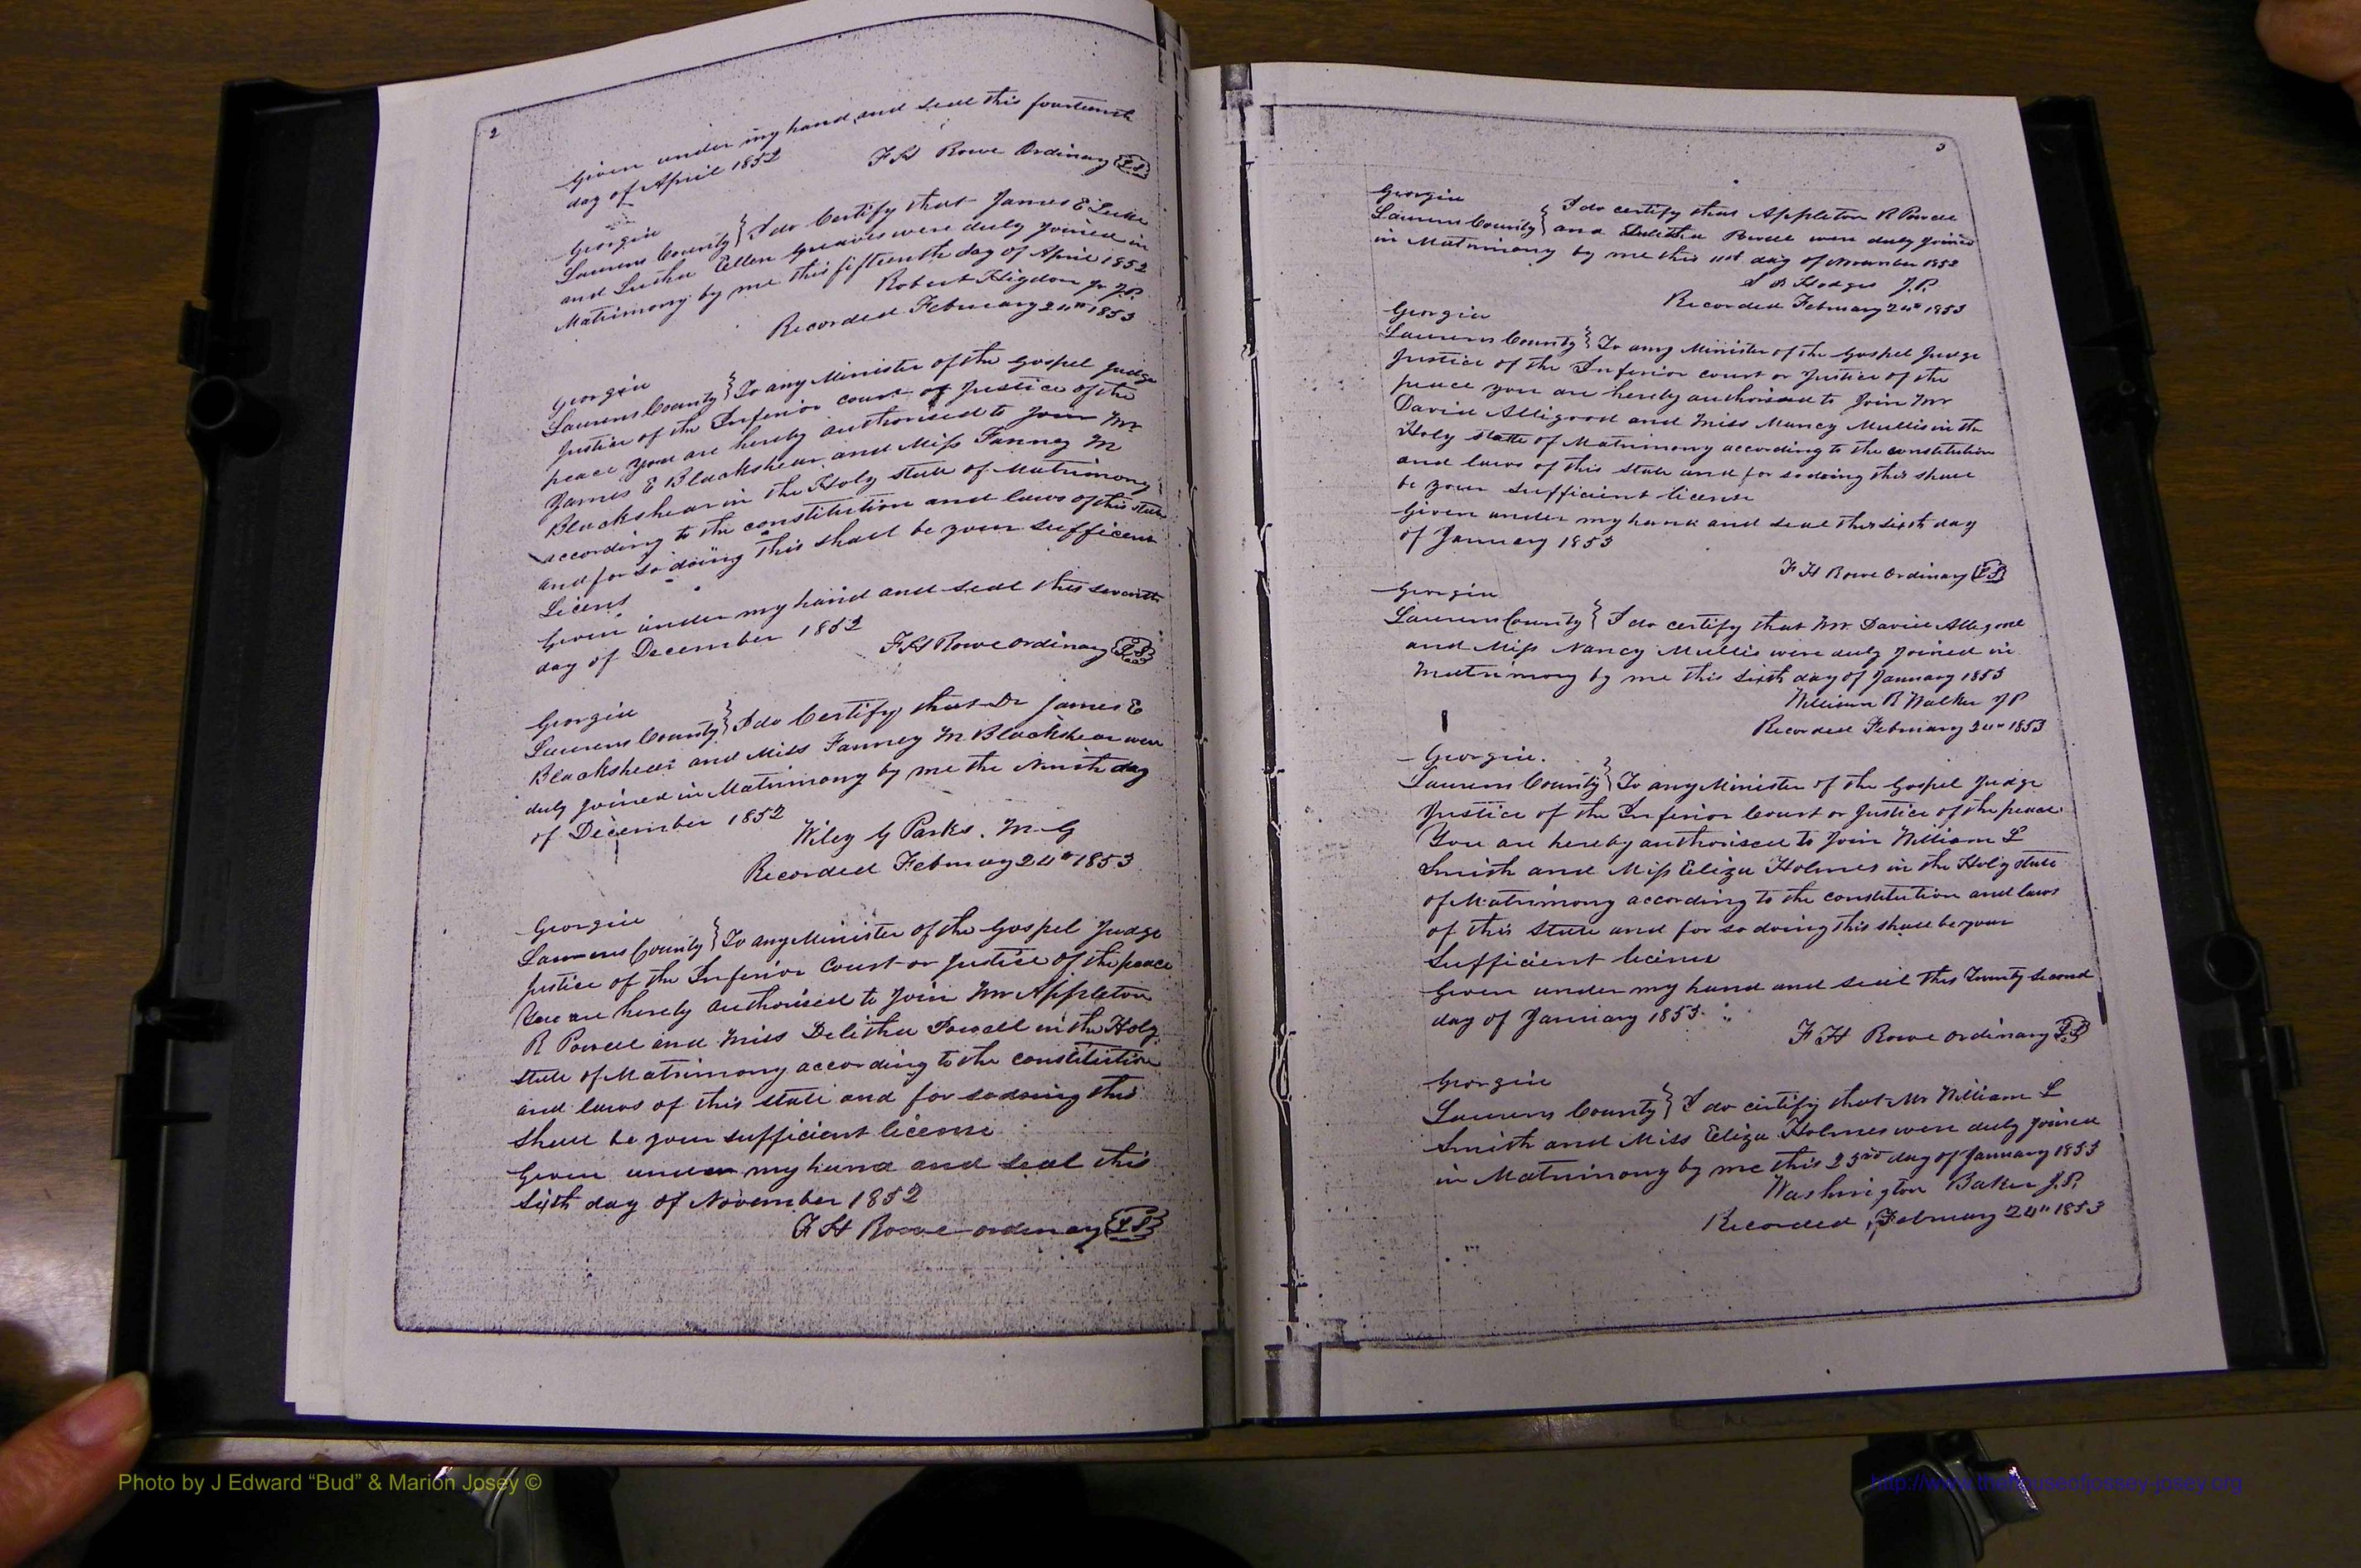 2
Given under my hand and seal this fourteenth
day of April 1852
F H Rowe Ordinary L S
Georgia
Laurens County } I do Certify that James E Luke
and Ellen Greaves were duly Joined in
Matrimony by me this fifteenth day of April 1852
Robert Higdon Jr J.P.
Recorded February 24th 1853
Georgia
Laurens County } To any Minister of the Gospel Judge
Justice of the Inferior court or Justice of the
peace you are hereby authorised to Join Mr
James E Blackshear and Miss Fanney M
Blackshear in the Holy state of Matrimony
according to the constitution and laws of this state
and for so doing this shall be your sufficient
Licens
Given under my hand and seal this seventh
day of December 1852
F H Rowe Ordinary L S
Georgia
Laurens County } I do Certify that Dr James E
Blackshear and Miss Fanney M Blackshear were
duly joined in Matrimony by me the Ninth day
of December 1852
Wiley G Parks. M G
Recorded February 24th 1853
Georgia
Laurens County } To any Minister of the Gospel Judge
Justice of the Inferior Court or Justice of the peace
You are hereby authorised to Join Mr Appleton
R Powell and Miss Delitha Powell in the Holy
state of Matrimony according to the constitution
and laws of this state and for so doing this
shall be your sufficient license
Given under my hand and seal this
sixth day of November 1852
F H Rowe ordinary L S
3
Georgia
Laurens County } I do certify that Appleton R Powell
and Delitha Powell were duly joined
in Matrimony by me this 11th day of November 1852
Hodges J.P.
Recorded February 24th 1853
Georgia
Laurens County } To any Minister of the Gospel Judge
Justice of the Inferior court or Justice of the
peace you are hereby authorised to Join Mr
David Alligood and Miss Nancy Mullis in the
Holy state of Matrimony according to the constitution
and laws of this state and for so doing this shall
be your sufficient license
Given under my hand and seal this sixth day
of January 1853
F H Rowe Ordinary L S
Georgia
Laurens County } I do certify that Mr. David Allegood
and Miss Nancy Mullis were duly joined in
Matrimony by me this sixth day of January 1853
William R Walker J P
Recorded February 24th 1853
Georgia.
Laurens County } To any Minister of the Gospel Judge
Justice of the Inferior Court or Justice of the peace
You are hereby authorised to Join William L
Smith and Miss Eliza Holmes in the Holy state
of Matrimony according to the constitution and laws
of this state and for so doing this shall be your
sufficient license
Given under my hand and seal this Twenty second
day of January 1853.
F H Rowe ordinary L S
Georgia
Laurens County } I do certify that Mr William L
Smith and Miss Eliza Holmes were duly joined
in Matrimony by me this 23rd day of January 1853
Washington Baker J.P.
Recorded February 24th 1853
Photo by J Edward “Bud” & Marion Josey ©
http://www.thehouseofjossey-josey.org